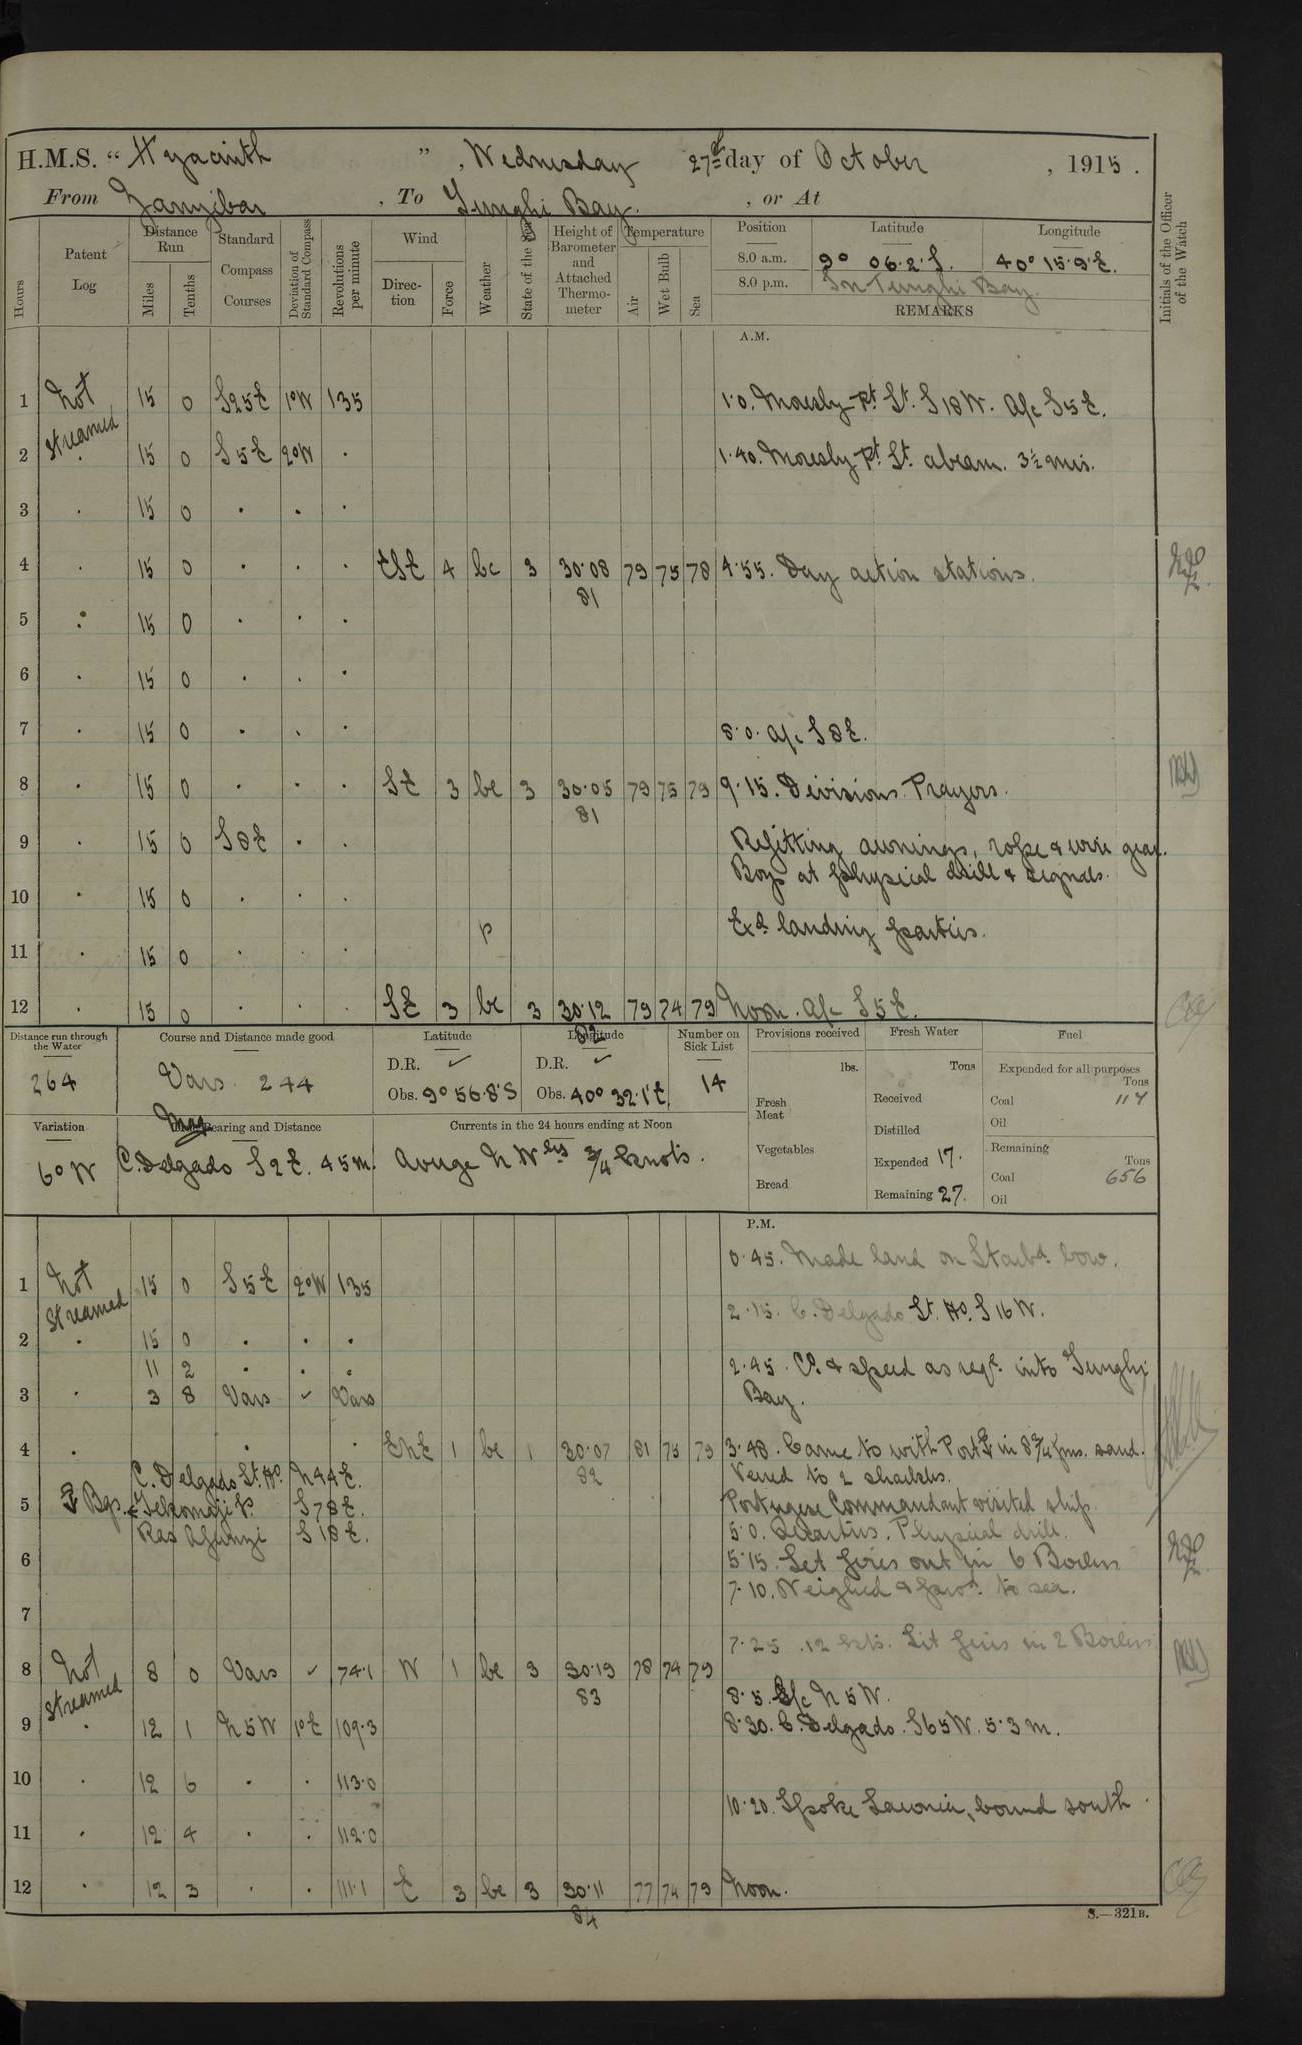 H.M.S. "Hyacinth", Wednesday 27th day of October, 1915.
From Zanzibar, To Tunghi Bay, or At
Hours
Patent Log
Distance Run
Miles
Tenths
Standard Compass Courses
Deviation of Standard Compass
Revolutions per minute
Wind
Direction
Force
Weather
State of the Sea
Height of Barometer and Attached Thermometer
Temperature
Air
Wet Bulb
Sea
Position
Latitude
Longitude
8.0 a.m. 9° 06.2' S. 40° 15.9' E.
8.0 p.m. In Tunghi Bay.
REMARKS
Initials of the Officer of the Watch
A.M.
1 Not 15 0 S25E 1°W 135 1.0. Moresby Pt Lt. S18W. A/c S5E.
Streamed
2 . 15 0 S5E 2°W . 1.40. Moresby Pt Lt. abeam. 3½ mls.
3 . 15 0 . . .
4 . 15 0 . . . ESE 4 bc 3 30.08 79 75 78 4.55. Day action stations.
81
5 . 15 0 . . .
6 . 15 0 . . .
7 . 15 0 . . . 8.0. A/c S8E.
8 . 15 0 . . . SE 3 bc 3 30.05 79 75 79 9.15. Divisions. Prayers.
81
9 . 15 0 S8E . . Refitting awnings, rope & wire gear.
Boys at physical drill & signals.
10 . 15 0 . . .
p Exd. landing parties.
11 . 15 0 . . .
12 . 15 0 . . . SE 3 bc 3 30.12 79 74 79 Noon. A/c S5E.
82
Distance run through the Water
264
Course and Distance made good
Vars 244
Latitude
D.R. ✓
Obs. 9° 56.8' S
Longitude
D.R. ✓
Obs. 40° 32.1' E.
Number on Sick List
14
Provisions received
lbs.
Fresh Meat
Vegetables
Bread
Fresh Water
Tons
Received
Distilled
Expended 17.
Remaining 27.
Fuel
Expended for all purposes
Tons
Coal 114
Oil
Remaining
Tons
Coal 656
Oil
Variation
6° W
Mag Bearing and Distance
C. Delgado S2E. 45 m.
Currents in the 24 hours ending at Noon
Average N Wly ¾ knots.
P.M.
0.45. Made land on Starbd. bow.
1 Not 15 0 S5E 2°W 135
Streamed 2.15. C. Delgado Lt. Ho. S16W.
2 . 15 0 . . .
11 2 . . . 2.45. Co. & speed as reqd. into Tunghi
3 . 3 8 Vars ✓ Vars Bay.
4 . . . ENE 1 bc 1 30.07 81 75 79 3.48. Came to with Port ⚓ in 8¾ fms. sand.
82
C. Delgado Lt. Ho. N44E. Veered to 2 shackles.
5 ⚓ Bgs. S78E. Portugese Commandant visited ship.
Ras Afunzi S18E. 5.0. Quarters. Physical drill.
6 5.15. Let fires out in 6 Boilers
7.10. Weighed & procd. to sea.
7
7.25. 12 kts. Lit fires in 2 Boilers
8 Not 8 0 Vars ✓ 74.1 W 1 bc 3 30.13 78 74 79
Streamed 83 8.5. A/c N5W.
9 . 12 1 N5W 1°E 109.3 8.30. C. Delgado. S65W. 5.3 m.
10 . 12 6 . . 113.0
10.20. Spoke Laconia, bound south.
11 . 12 4 . . 112.0
12 . 12 3 . . 111.1 E 3 bc 3 30.11 77 74 79 Noon.
84
S.—321B.